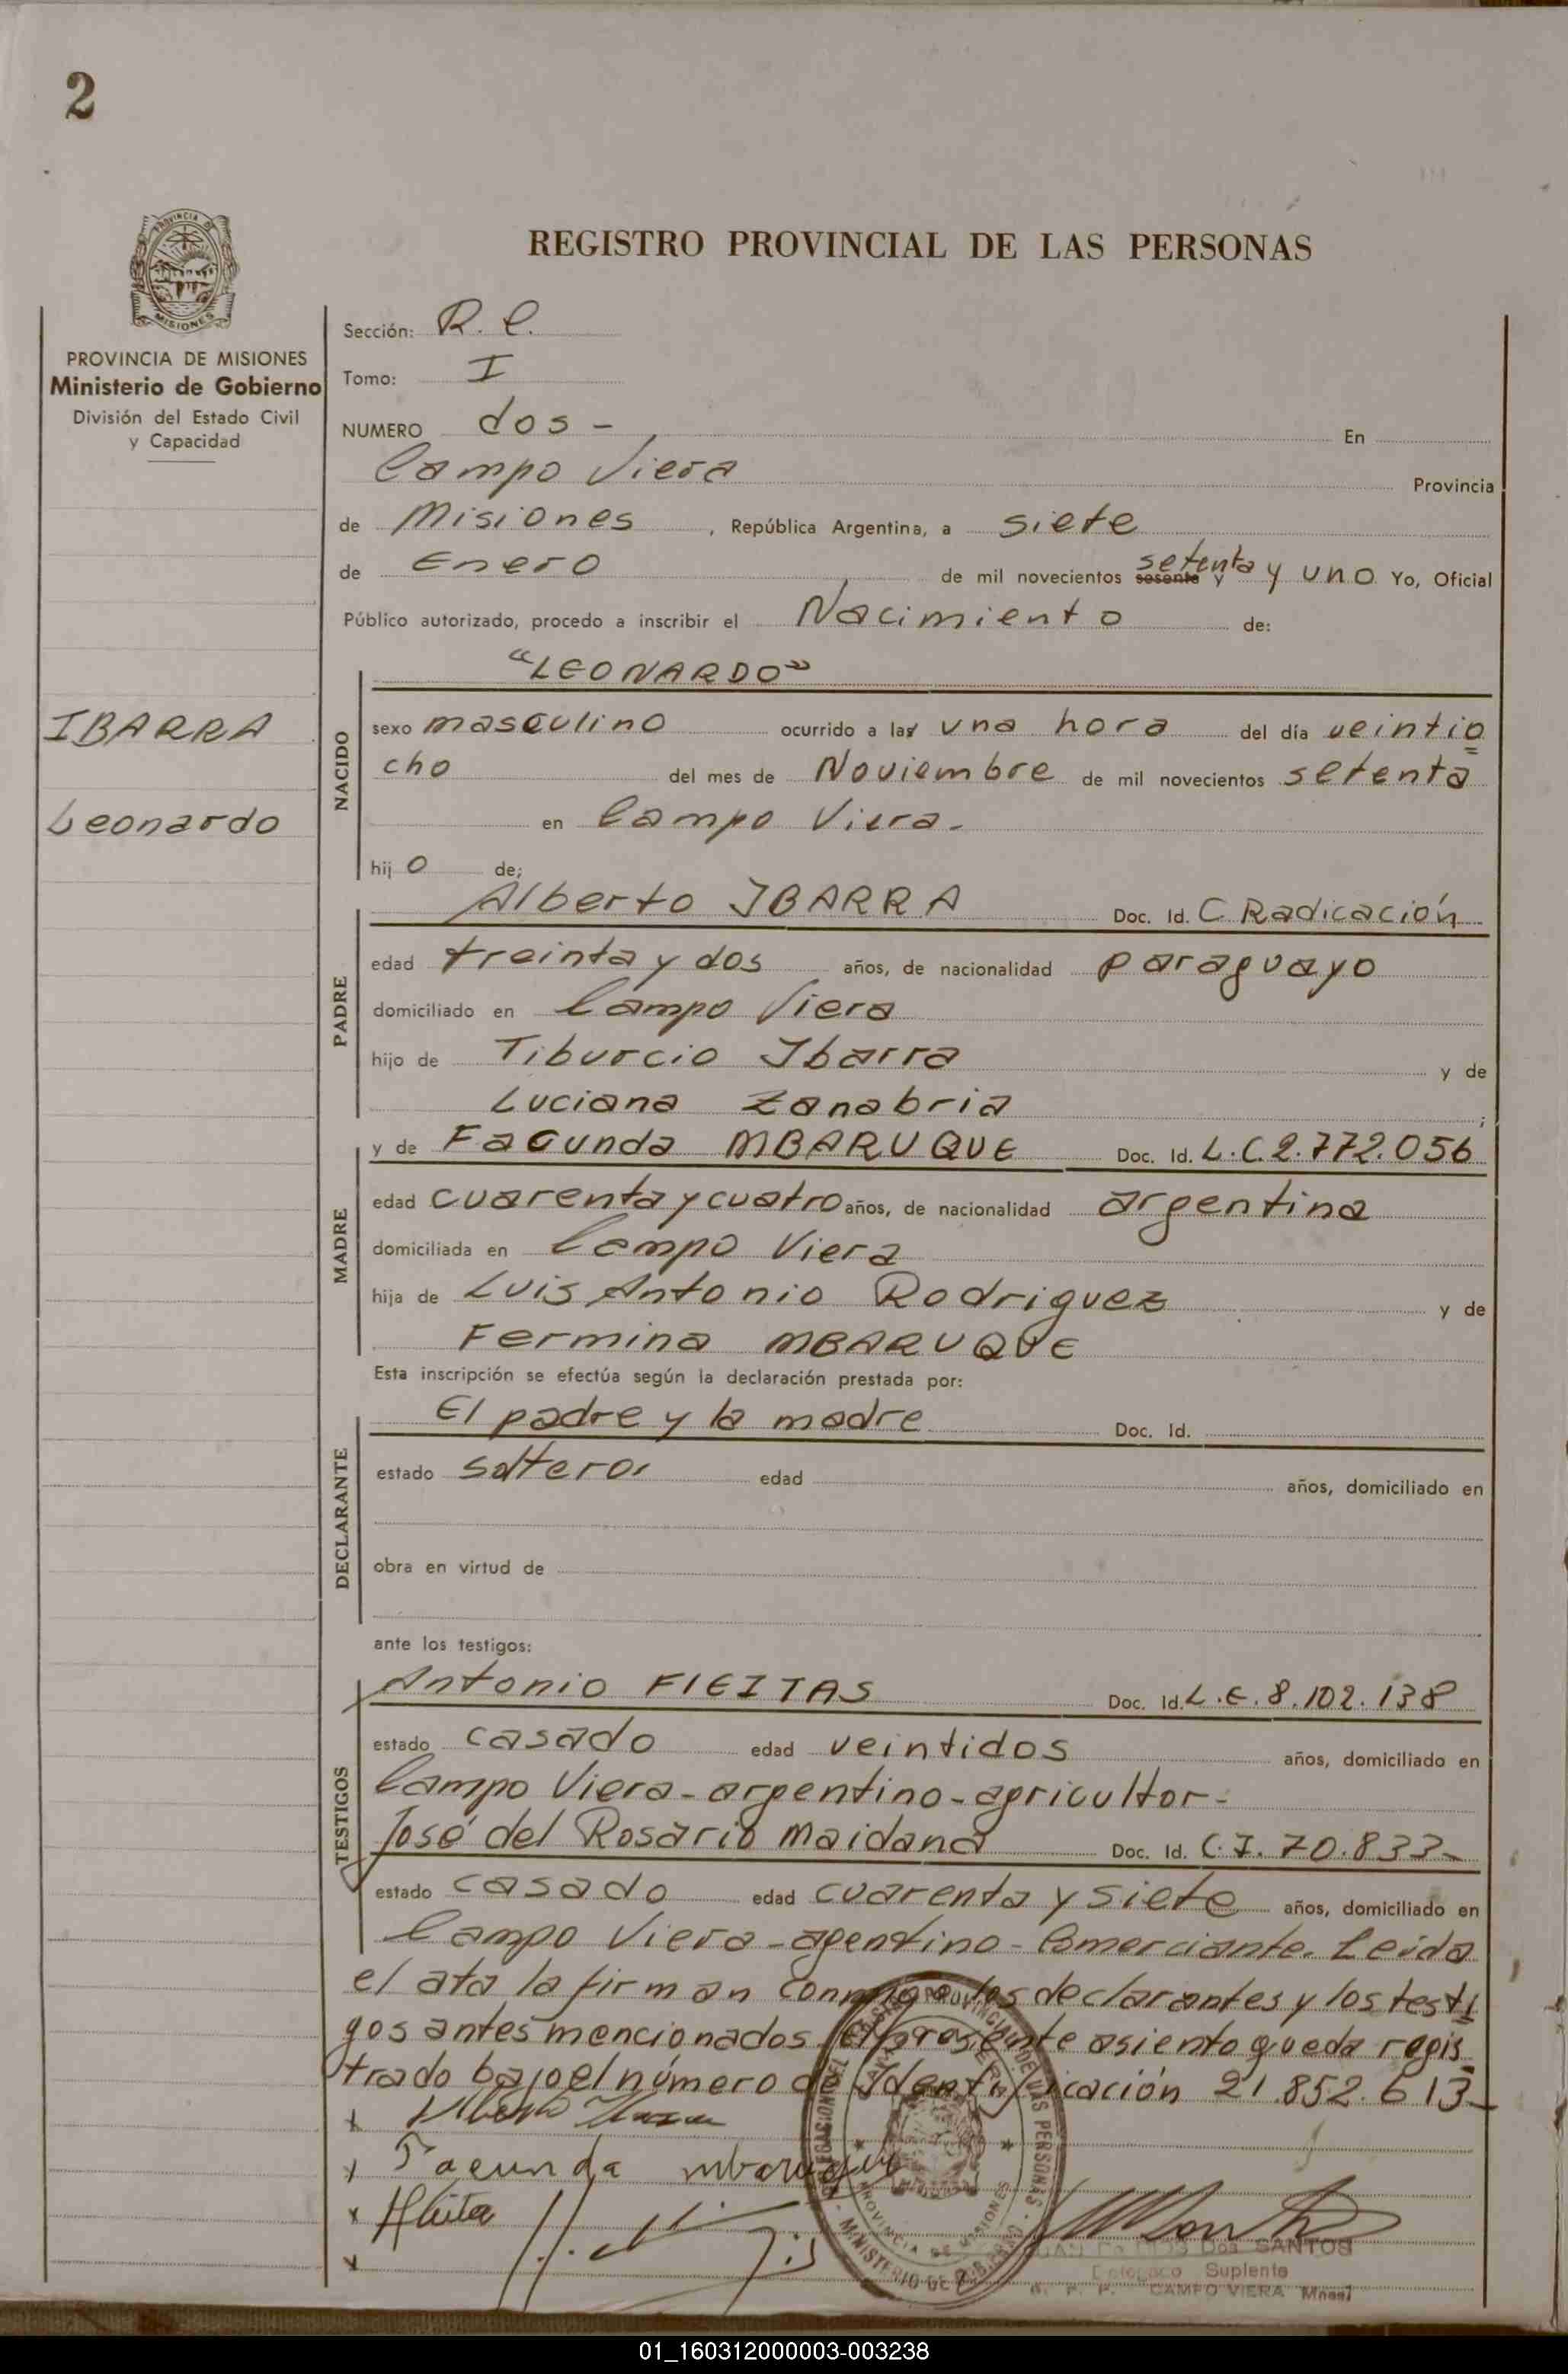 2
REGISTRO PROVINCIAL DE LAS PERSONAS
PROVINCIA DE MISIONES
Ministerio de Gobierno
División del Estado Civil
y Capacidad
IBARRA
Leonardo
Sección: R. C.
Tomo: I
NUMERO dos - En
Campo Viera Provincia
de Misiones, República Argentina, a siete
de Enero de mil novecientos sesenta y setenta y uno Yo, Oficial
Público autorizado, procedo a inscribir el Nacimiento de:
NACIDO
"LEONARDO"
sexo masculino ocurrido a las una hora del día veintio
cho del mes de Noviembre de mil novecientos setenta
en Campo Viera.
hijo de;
PADRE
Alberto IBARRA Doc. Id. C. Radicación
edad treinta y dos años, de nacionalidad paraguayo
domiciliado en Campo Viera
hijo de Tiburcio Ibarra y de
Luciana Zanabria ;
MADRE
y de Facunda MBARUQUE Doc. Id. L.C. 2.772.056
edad cuarenta y cuatro años, de nacionalidad argentina
domiciliada en Campo Viera
hija de Luis Antonio Rodriguez y de
Fermina MBARUQUE
Esta inscripción se efectúa según la declaración prestada por:
DECLARANTE
El padre y la madre Doc. Id.
estado solteros edad años, domiciliado en
obra en virtud de
ante los testigos:
TESTIGOS
Antonio FIEITAS Doc. Id. L.E. 8.102.138
estado casado edad veintidos años, domiciliado en
Campo Viera - argentino - agricultor -
José del Rosario Maidana Doc. Id. C.I. 70.833-
estado casado edad cuarenta y siete años, domiciliado en
Campo Viera - agentino - Comerciante. Leida
el ata la firman conmigo los declarantes y los testi
gos antes mencionados. El presente asiento queda regis
trado bajo el número de Identificación 21.852.613-
x Alberto Ibarra
x Facunda mbaruque
x
x
DELEGACION DEL REGISTRO PROVINCIAL DE LAS PERSONAS
PROVINCIA DE MISIONES
MINISTERIO DE GOBIERNO
Dos SANTOS
Delegado Suplente
R. P. P. CAMPO VIERA Mnes
01_160312000003-003238